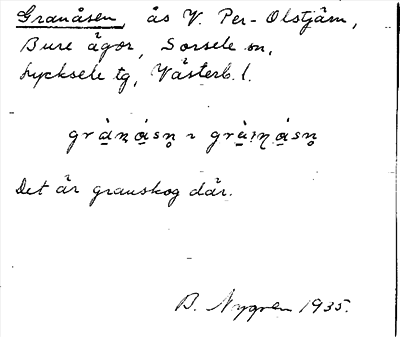 Granåsen, ås V. Per-Olstjärn,
Bure ägor, Sorsele sn,
Lycksele tg, Västerb. l.
Det är granskog där.
B. Nygren 1935.